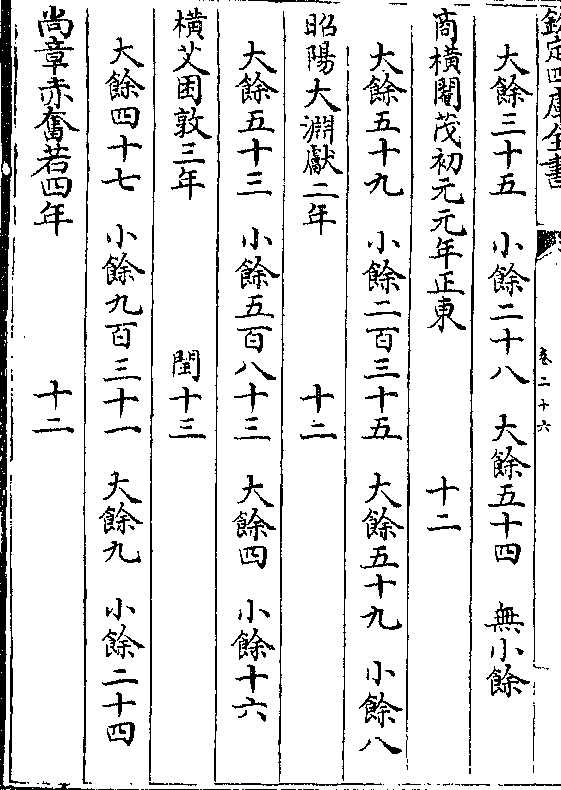 欽定四庫全書
卷二十六
大餘三十五　小餘二十八　大餘五十四　無小餘
商橫閹茂初元元年正東　十二
大餘五十九　小餘二百三十五　大餘五十九　小餘八
昭陽大淵獻二年　十二
大餘五十三　小餘五百八十三　大餘四　小餘十六
橫艾困敦三年　閏十三
大餘四十七　小餘九百三十一　大餘九　小餘二十四
尚章赤奮若四年　十二